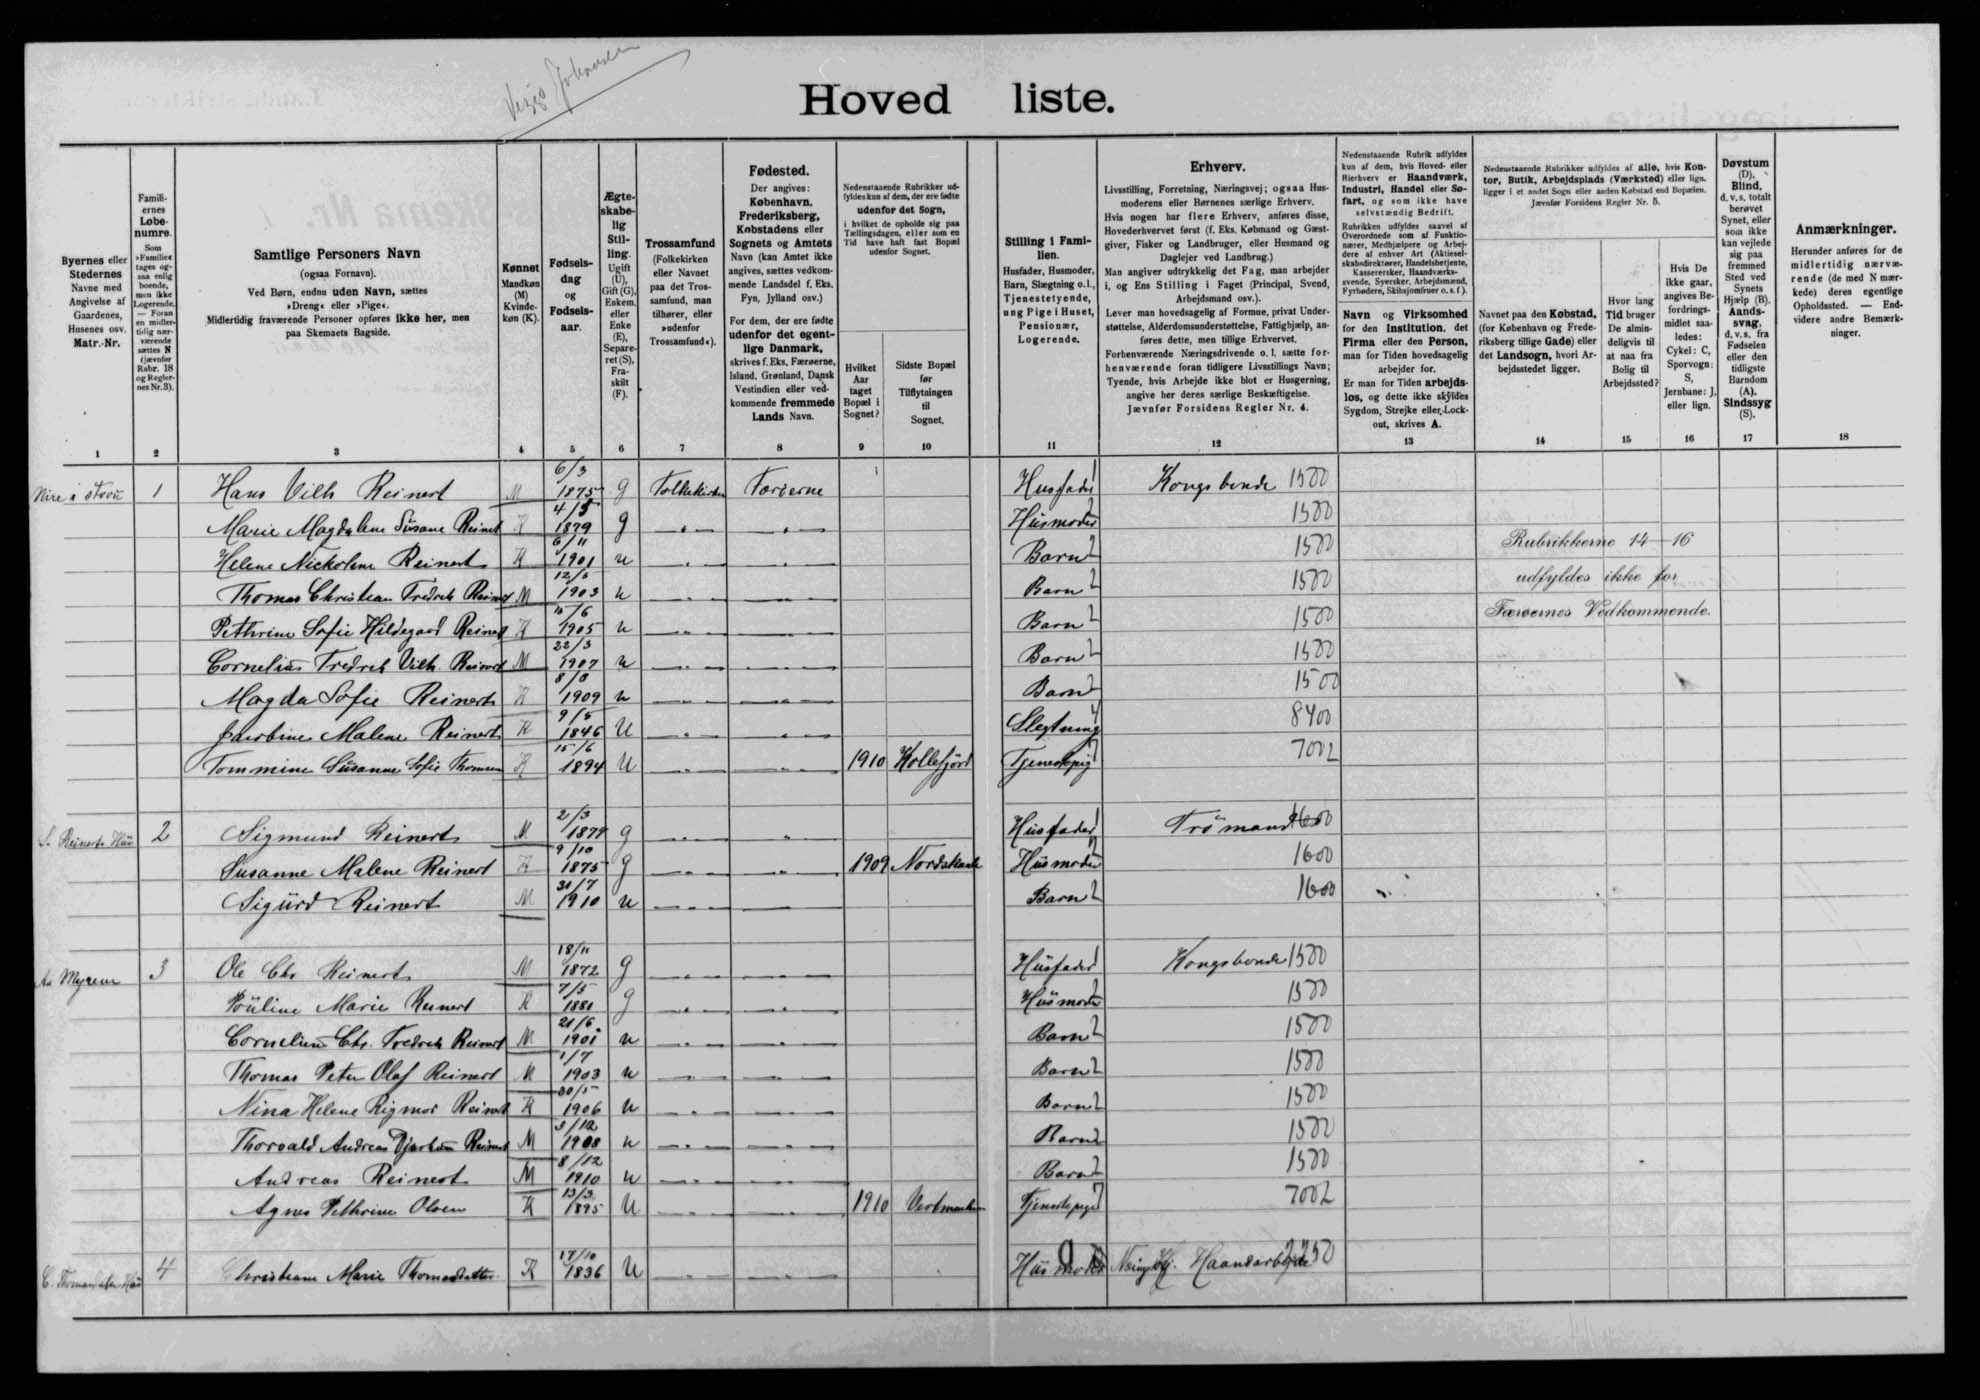 Hovedliste.
Byernes eller Stedernes Navne med Angivelse af Gaardenes, Husenes osv. Matr.-Nr.
Familiernes Løbenumre. Som »Familie« tages ogsaa enlig boende, men ikke Logerende. — Foran en midlertidig nærværende sættes N (jævnfør Rubr. 18 og Reglernes Nr. 3).
Samtlige Personers Navn
(ogsaa Fornavn).
Ved Børn, endnu uden Navn, sættes »Dreng« eller »Pige«.
Midlertidig fraværende Personer opføres ikke her, men paa Skemaets Bagside.
Kønnet Mandkøn (M) Kvindekøn (K).
Fødselsdag og Fødselsaar.
Ægteskabelig Stilling. Ugift (U), Gift (G), Enkem. eller Enke (E), Separeret (S), Fraskilt (F).
Trossamfund (Folkekirken eller Navnet paa det Trossamfund, man tilhører, eller »udenfor Trossamfund«).
Fødested.
Der angives: København, Frederiksberg, Købstadens eller Sognets og Amtets Navn (kan Amtet ikke angives, sættes vedkommende Landsdel f. Eks. Fyn, Jylland osv.)
For dem, der ere fødte udenfor det egentlige Danmark, skrives f. Eks. Færøerne, Island, Grønland, Dansk Vestindien eller vedkommende fremmede Lands Navn.
Nedenstaaende Rubrikker udfyldes kun af dem, der ere fødte udenfor det Sogn, i hvilket de opholde sig paa Tællingsdagen, eller som en Tid have haft fast Bopæl udenfor Sognet.
Hvilket Aar taget Bopæl i Sognet?
Sidste Bopæl før Tilflytningen til Sognet.
Stilling i Familien.
Husfader, Husmoder, Barn, Slægtning o.l., Tjenestetyende, ung Pige i Huset, Pensionær, Logerende.
Erhverv.
Livsstilling, Forretning, Næringsvej; ogsaa Husmoderens eller Børnenes særlige Erhverv.
Hvis nogen har flere Erhverv, anføres disse, Hovederhvervet først (f. Eks. Købmand og Gæstgiver, Fisker og Landbruger, eller Husmand og Daglejer ved Landbrug.)
Man angiver udtrykkelig det Fag, man arbejder i, og Ens Stilling i Faget (Principal, Svend, Arbejdsmand osv.).
Lever man hovedsagelig af Formue, privat Understøttelse, Alderdomsunderstøttelse, Fattighjælp, anføres dette, men tillige Erhvervet.
Forhenværende Næringsdrivende o. l. sætte forhenværende foran tidligere Livsstillings Navn; Tyende, hvis Arbejde ikke blot er Husgerning, angive her deres særlige Beskæftigelse.
Jævnfør Forsidens Regler Nr. 4.
Nedenstaaende Rubrik udfyldes kun af dem, hvis Hoved- eller Bierhverv er Haandværk, Industri, Handel eller Søfart, og som ikke have selvstændig Bedrift.
Rubrikken udfyldes saavel af Overordnede som af Funktionærer, Medhjælpere og Arbejdere af enhver Art (Aktieselskabsdirektører, Handelsbetjente, Kasserersker, Haandværkssvende, Syersker, Arbejdsmænd, Fyrbødere, Skibsjomfruer o.s.f.).
Navn og Virksomhed for den Institution, det Firma eller den Person, man for Tiden hovedsagelig arbejder for.
Er man for Tiden arbejdsløs, og dette ikke skyldes Sygdom, Strejke eller Lockout, skrives A.
Nedenstaaende Rubrikker udfyldes af alle, hvis Kontor, Butik, Arbejdsplads (Værksted) eller lign. ligger i et andet Sogn eller anden Købstad end Bopælen.
Jævnfør Forsidens Regler Nr. 5.
Navnet paa den Købstad, (for København og Frederiksberg tillige Gade) eller det Landsogn, hvori Arbejdsstedet ligger.
Hvor lang Tid bruger De almindeligvis til at naa fra Bolig til Arbejdssted?
Hvis De ikke gaar, angives Befordringsmidlet saaledes: Cykel: C, Sporvogn: S, Jernbane: J, eller lign.
Døvstum (D). Blind, d. v. s. totalt berøvet Synet, eller som ikke kan vejlede sig paa fremmed Sted ved Synets Hjælp (B). Aandssvag, d. v. s. fra Fødselen eller den tidligste Barndom (A). Sindssyg (S).
Anmærkninger.
Herunder anføres for de midlertidig nærværende (de med N mærkede) deres egentlige Opholdssted. — Endvidere andre Bemærkninger.
1 2 3 4 5 6 7 8 9 10 11 12 13 14 15 16 17 18
1 Hans Vilh Reinert M 6/3 1875 g Folkekirken Færöerne Husfader 1 Kongsbonde 1500
Marie Magdalene Süsane Reinert K 1879 g Hüsmoder 2 1500
Helene Nickoline Reinert K 6/11 1901 u Barn 2 1500
Thomas Christian Fredrik Reinert M 1903 u Barn 2 1500
Pethrine Sofie Hildegard Reinert K 1905 u Barn 2 1500
Cornelius Fredrik Vilh. Reinert M 22/3 1907 u Barn 2 1500
Magda Sofie Reinert K 8/8 1909 u Barn 2 1500
Jacobine Malene Reinert K 9/5 1846 U Slegtning 4 8400
Tommine Süsanne Sofie Thomsen K 15/6 1894 U 1910 Kollefjörd Tjenestepig 7 7002
Rubrikkerne 14–16
udfyldes ikke for
Færøernes Vedkommende.
S. Reinerts Hüs 2 Sigmund Reinert M 2/3 g Husfader 1 1600
Susanne Malene Reinert K 9/10 1875 g 1909 Hüsmoder 2 1600
Sigürd Reinert M 31/7 1910 u Barn 2 1600
Myrene 3 Ole Chr Reinert M 18/11 1872 g Hüsfader 1 Kongsbonde 1500
Pöüline Marie Reinert K 7/5 g Hüsmoder 2 1500
Cornelius Chr. Fredrik Reinert M 21/6 1901 u Barn 2 1500
Thomas Peter Olaf Reinert M 1/7 1903 u Barn 2 1500
Nina Helene Rigmor Reinert K 30/5 1906 u Barn 2 1500
Thorvald Andreas Reinert M 3/12 1908 u Barn 2 1500
Andreas Reinert M 8/12 1910 u Barn 2 1500
Agnes Pethrine Olsen K 13/3 1895 U 1910 Vestmanhavn Tjenestepige 7 7002
4 Christiane Marie Thomasdatter K 17/10 1836 U Haandarbejde